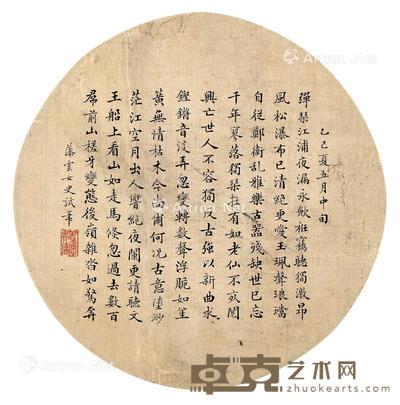 乙巳夏五月中旬
彈琴江浦夜漏永歛衽竊聽獨激昂
風松瀑布已清絕更愛玉珮聲琅璫
自從鄭衛亂雅樂古器殘缺世已忘
千年寥落獨琴在有如老仙不死閱
興亡世人不容獨反古強以新曲求
鏗鏘音淡弄忽變轉數聲浮脆如笙
簧無情枯木今尚爾何況古意墮渺
茫江空月出人響絕夜闌更請聽文
王船上看山如走馬倏忽過去數百
羣前山槎牙變態後嶺雜沓如驚奔
藻雲女史試筆
Artron.Net
卓克艺术网
www.zhuokearts.com